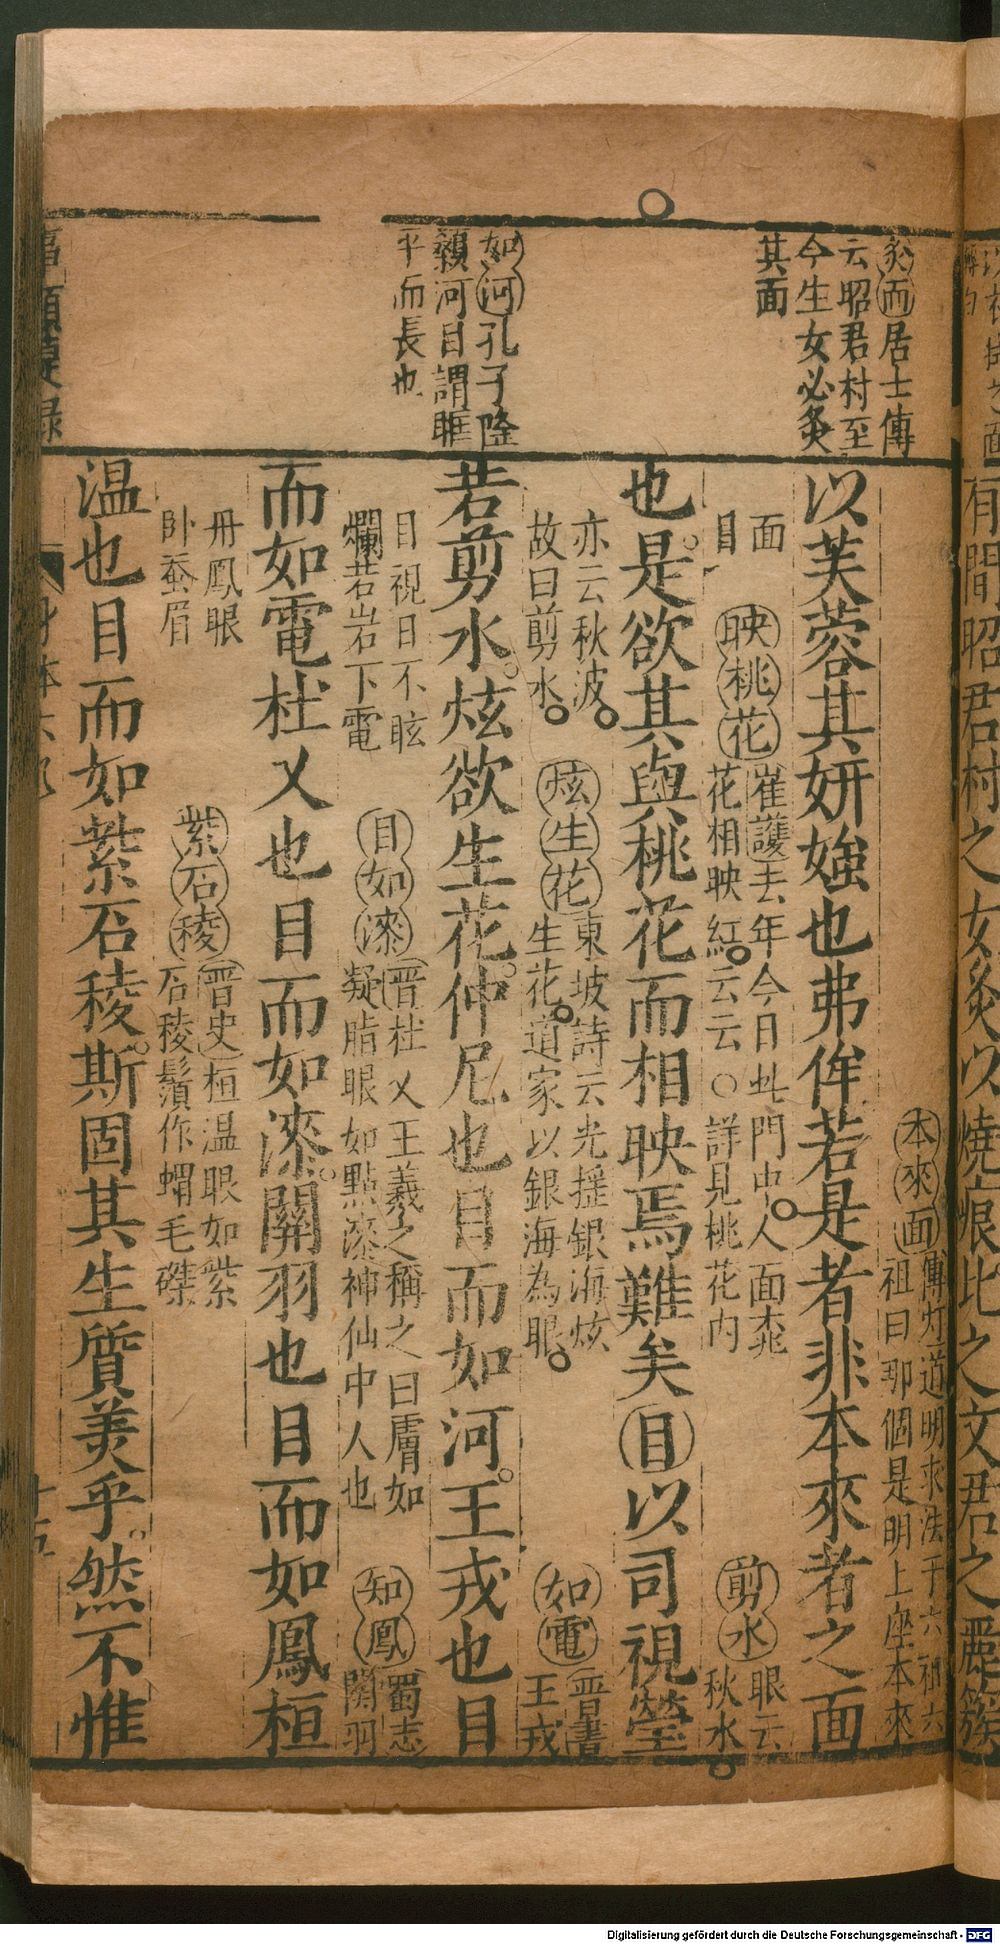 炙面居士傳
云昭君村至
今生女必炙
其面
如河孔子隆
顙河目謂眶
平而長也
本來面傳灯道明求法于六祖六
祖曰那個是明上座本來
以芙蓉其妍媸也弗侔若是者非本來者之面
面
目
映桃花崔護去年今日此門中人面桃
花相映紅云云○詳見桃花內
剪水眼云
秋水
也是欲其與桃花而相映焉難矣目以司視瑩
亦云秋波
故曰剪水
炫生花東坡詩云光搖銀海炫
生花道家以銀海為眼
如電晋書
王戎
若剪水炫欲生花仲尼也目而如河王戎也目
目視日不眩
爛若岩下電
目如漆晋杜乂王羲之稱之曰膚如
凝脂眼如點漆神仙中人也
如鳳蜀志
關羽
而如電杜乂也目而如漆關羽也目而如鳳桓
丹鳳眼
卧蚕眉
紫石稜晋史桓温眼如紫
石稜鬚作蝟毛磔
温也目而如紫石稜斯固其生質美乎然不惟
身体六
十五
有間昭君村之女炙以燒痕比之文君之
Digitalisierung gefördert durch die Deutsche Forschungsgemeinschaft - DFG